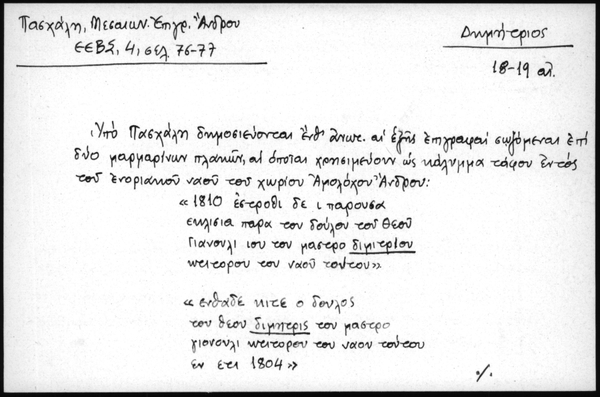 Πασχάλη, Μεσαιων. Ἐπιγρ. Ἄνδρου
ΕΕΒΣ, 4, σελ. 76-77
Δημήτριος
18-19 αἰ.
Ὑπὸ Πασχάλη δημοσιεύονται ἔνθ' ἀνωτ. αἱ ἑξῆς ἐπιγραφαὶ σωζόμεναι ἐπὶ
δύο μαρμαρίνων πλακῶν, αἱ ὁποῖαι χρησιμεύουν ὡς κάλυμμα τάφου ἐντὸς
τοῦ ἐνοριακοῦ ναοῦ τοῦ χωρίου Ἀμολόχου Ἄνδρου:
« 1810 εστροθι δε ι παρουσα
εκλισια παρα του δούλου τοῦ θεοῦ
Γιανουλι ιου του μαστρο διμιτρίου
κτιτορου του ναοῦ τούτου»
« ενθαδε κιτε ο δουλος
του θεου διμητρις του μαστρο
γιονουλι κτιτορου του ναου τούτου
εν ετι 1804 »
./.